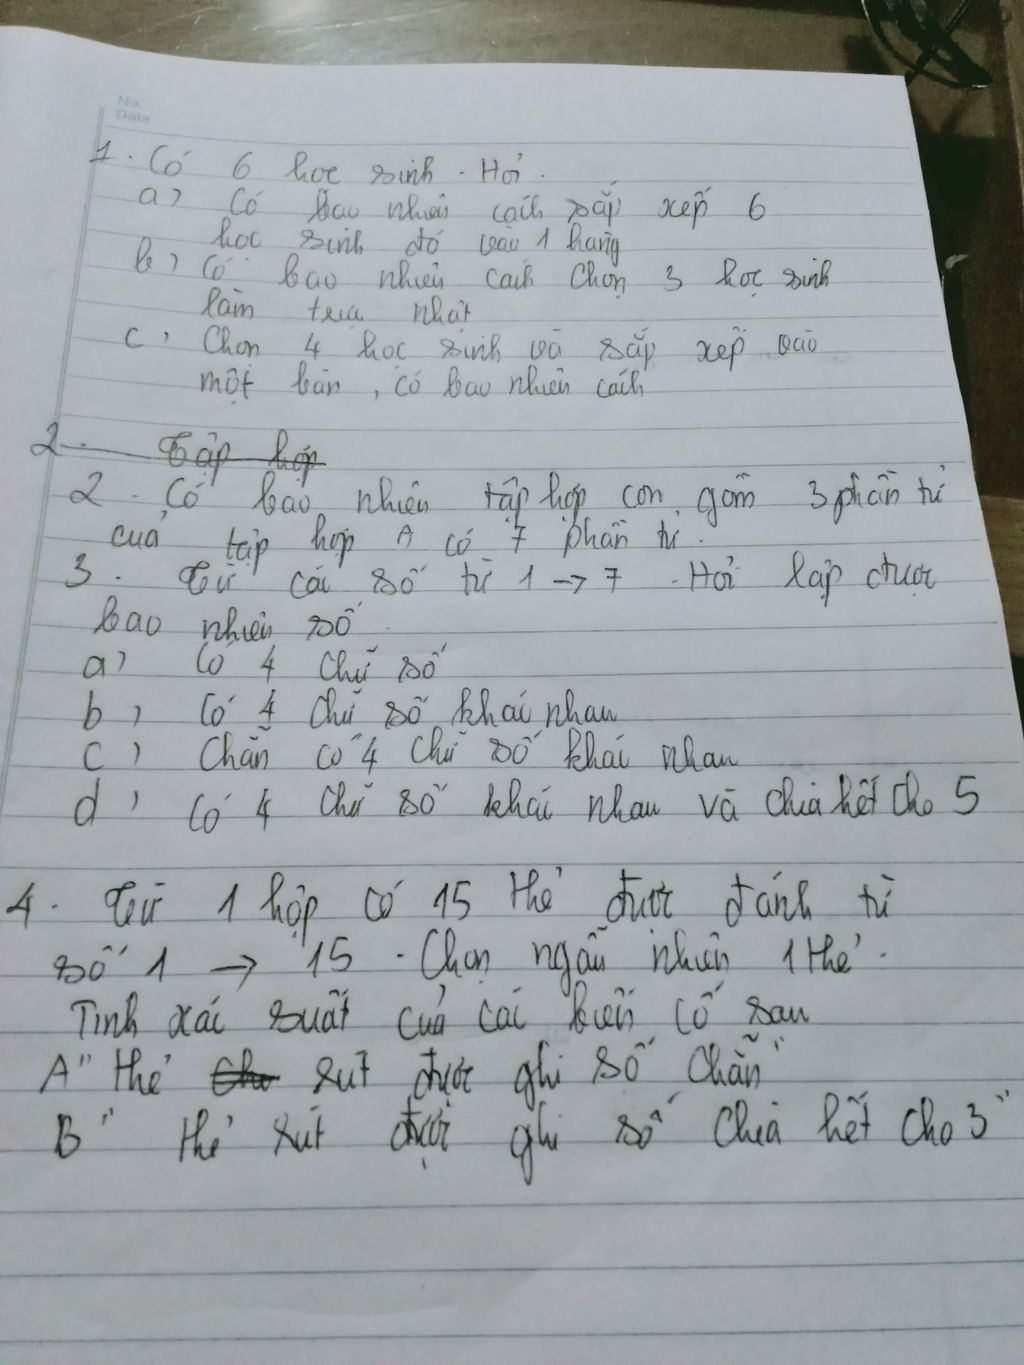 No.
Date
1. Có 6 học sinh. Hỏi.
a) Có bao nhiêu cách sắp xếp 6
học sinh đó vào 1 hàng
b) Có bao nhiêu cách chọn 3 học sinh
làm trực nhật
c) Chọn 4 học sinh và sắp xếp vào
một bàn, có bao nhiêu cách
2. Tập hợp
2. Có bao nhiêu tập hợp con gồm 3 phần tử
của tập hợp A có 7 phần tử.
3. Từ các số từ 1 → 7. Hỏi lập được
bao nhiêu số
a) Có 4 chữ số
b) Có 4 chữ số khác nhau
c) Chẵn có 4 chữ số khác nhau
d) Có 4 chữ số khác nhau và chia hết cho 5
4. Từ 1 hộp có 15 thẻ được đánh từ
số 1 → 15. Chọn ngẫu nhiên 1 thẻ.
Tính xác suất của các biến cố sau
A" thẻ rút được ghi số chẵn"
B" thẻ rút được ghi số chia hết cho 3"